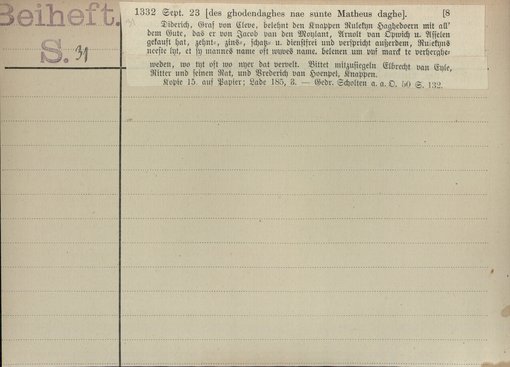 Beiheft.
S. 31
1332 Sept. 23 [des ghodendaghes nae sunte Matheus daghe]. [8
Diderich, Graf von Cleve, belehnt den Knappen Rulekyn Haghedoern mit all'
dem Gute, das er von Jacob van den Moylant, Arnolt van Opwich u. Asselen
gekauft hat, zehnt-, zins-, schatz- u. dienstfrei und verspricht außerdem, Rulekyns
neeste lyt, et sy mannes name oft wyves name, belenen um vyf marck te verherghe-
weden, wo tyt oft wo nyer dat vervelt. Bittet mitzusiegeln Elbrecht van Eyle,
Ritter und seinen Rat, und Vrederich van Hoenpel, Knappen.
Kopie 15. auf Papier; Lade 185, 3. — Gedr. Scholten a. a. O. 50 S. 132.